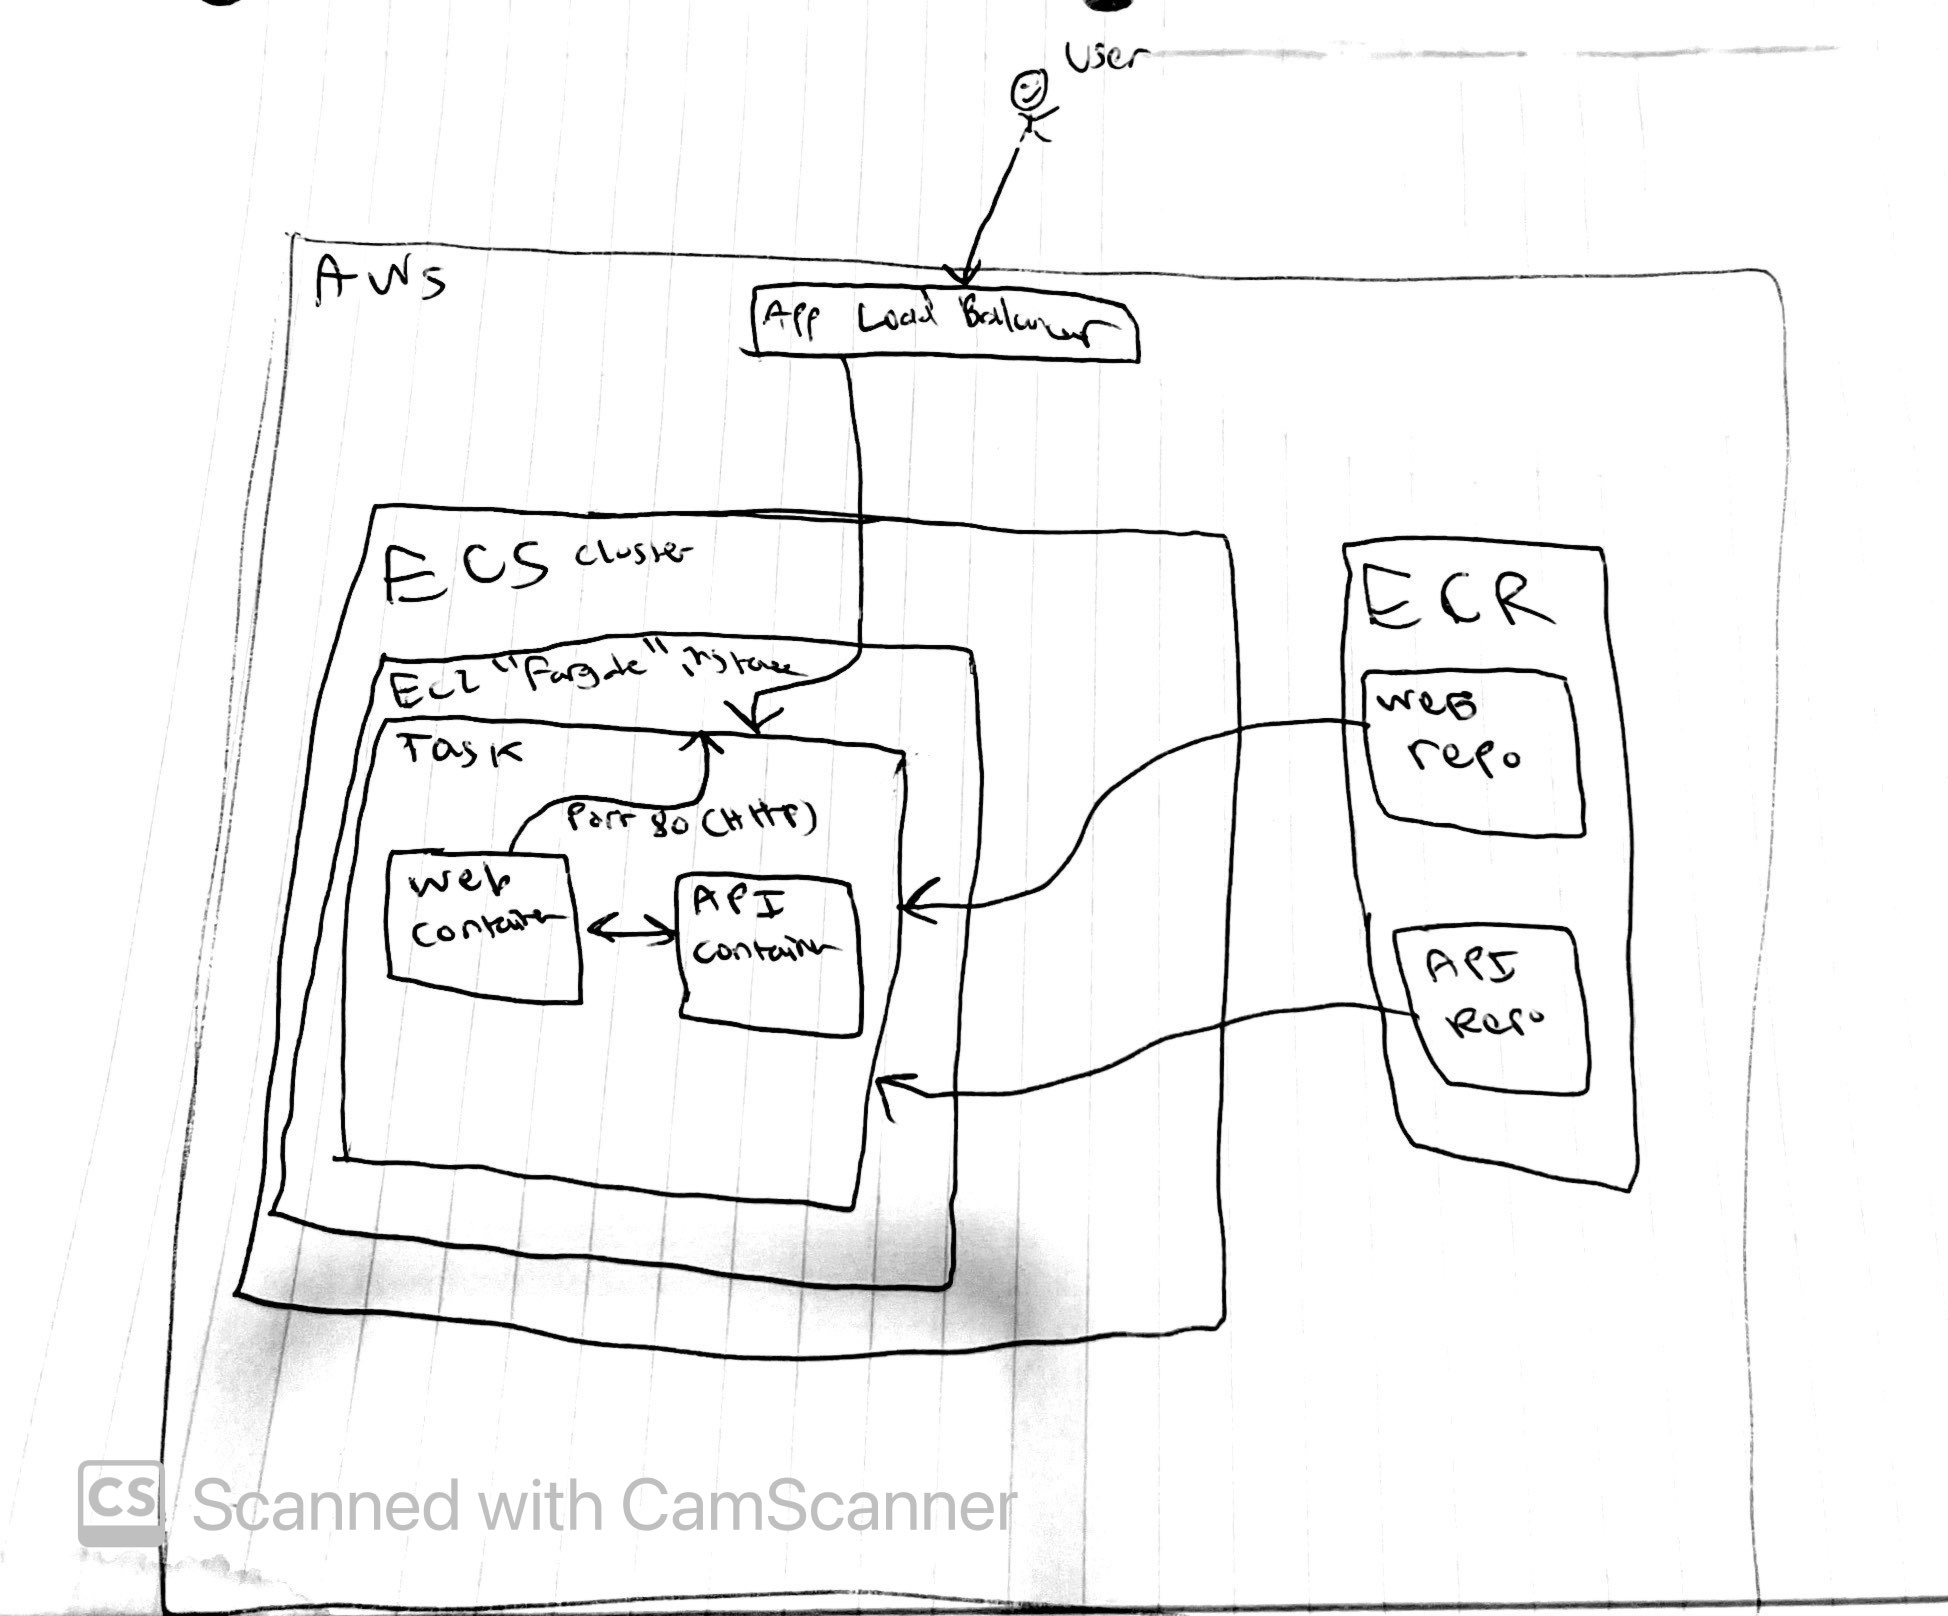 User
AWS
App Load Balancer
ECS cluster
EC2 "Fargate" instance
Task
Port 80 (HTTP)
Web
container
API
container
ECR
Web
repo
API
Repo
CS Scanned with CamScanner